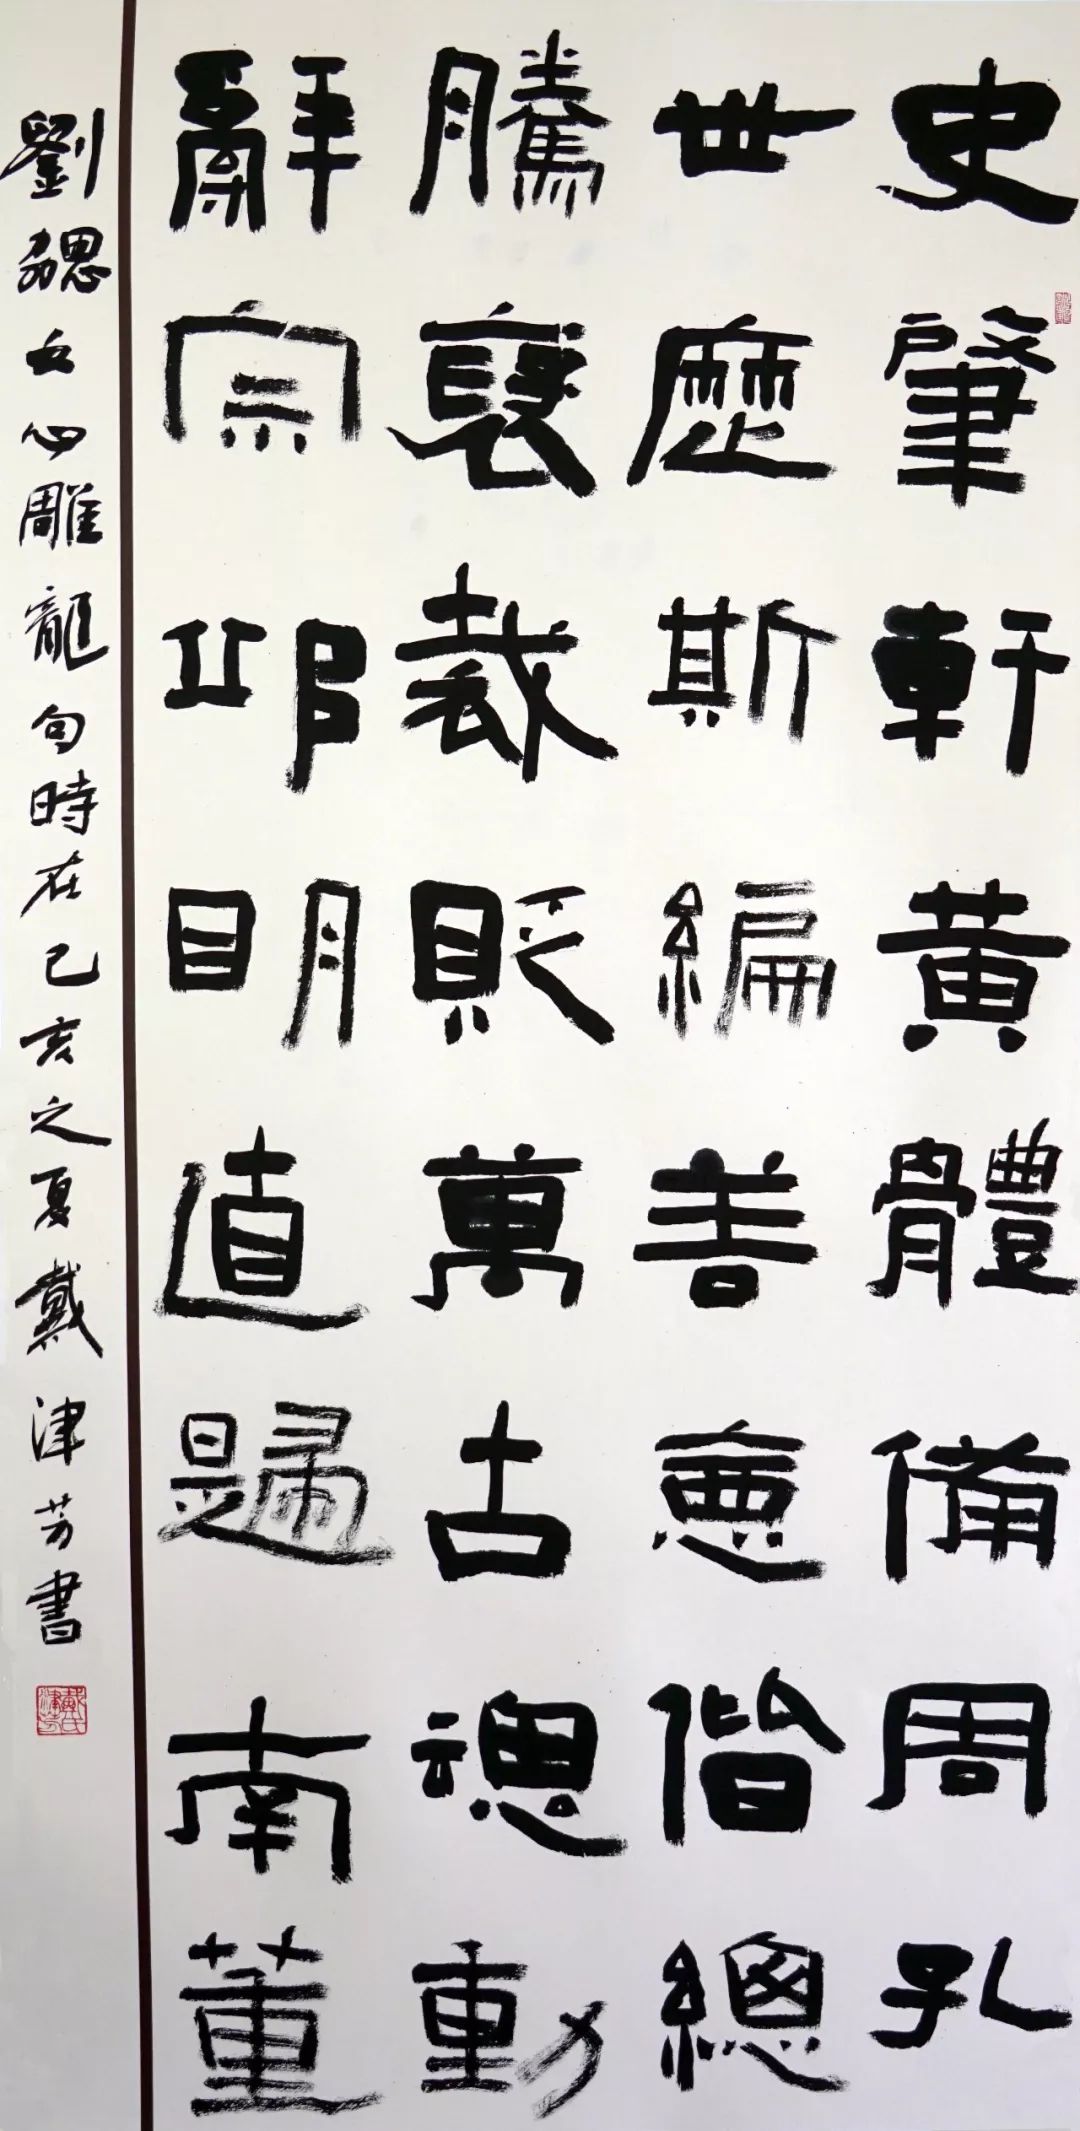 史肇軒黃體備周孔
世歷斯編善惡偕總
騰褒裁貶萬古魂動
辭宗邱眀直歸南董
劉勰文心雕龍句時在己亥之夏戴津芳書